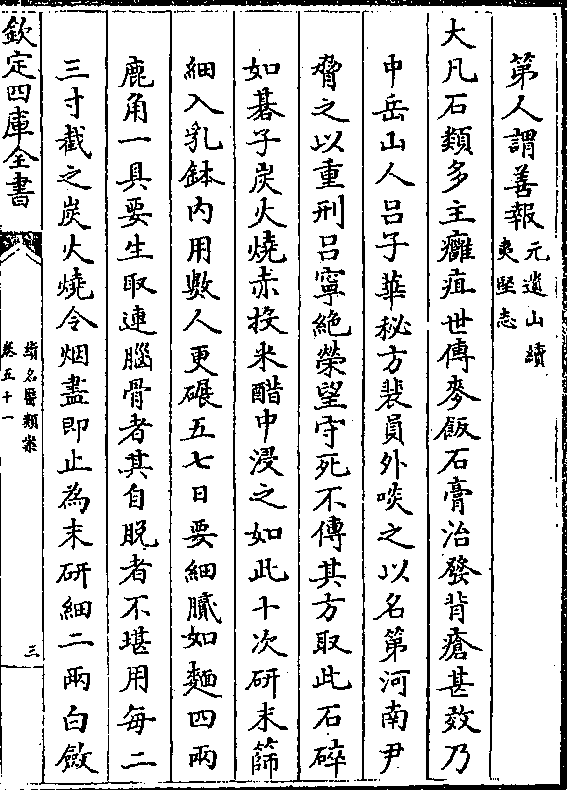 第人謂善報元遺山續
夷堅志
大凡石類多主癰疽世傳麥飯石膏治發背瘡甚效乃
中岳山人吕子華秘方裴員外啖之以名第河南尹
脅之以重刑吕寧絶榮望守死不傳其方取此石碎
如棊子炭火燒赤投米醋中浸之如此十次研末篩
細入乳鉢内用數人更碾五七日要細膩如麵四兩
鹿角一具要生取連腦骨者其自脱者不堪用每二
三寸截之炭火燒令烟盡即止為末研細二兩白斂
欽定四庫全書
續名醫類案
卷五十一
三